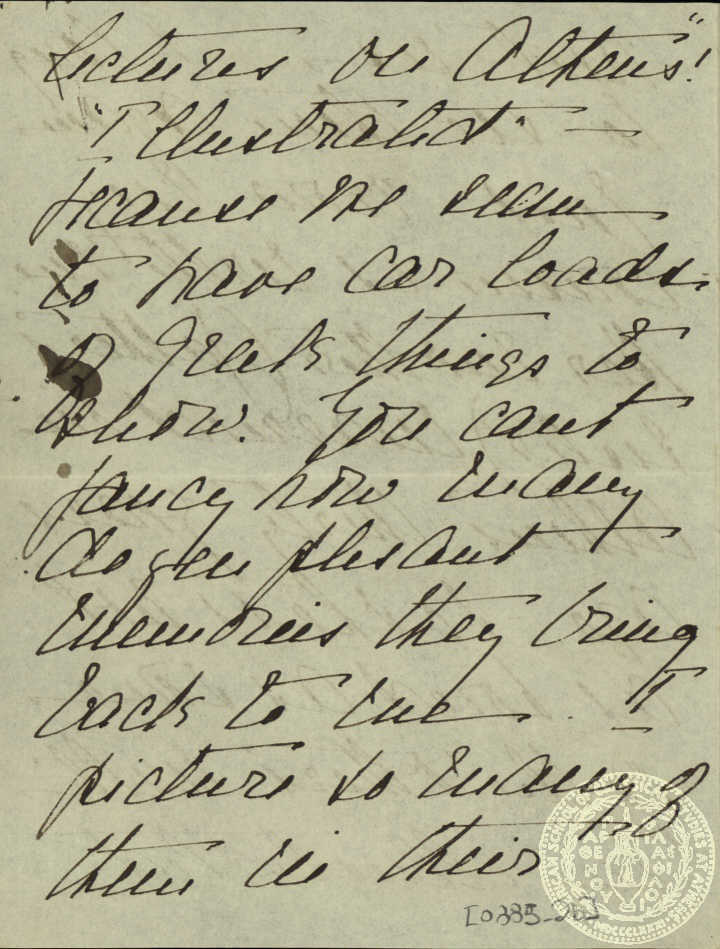 lectures on Athens"!
"Illustrated" —
because we seem
to have car loads
of Greek things to
show. You cant
fancy how many
dozen plesant
memories they bring
back to me. I
picture so many of
them in their
[0385_